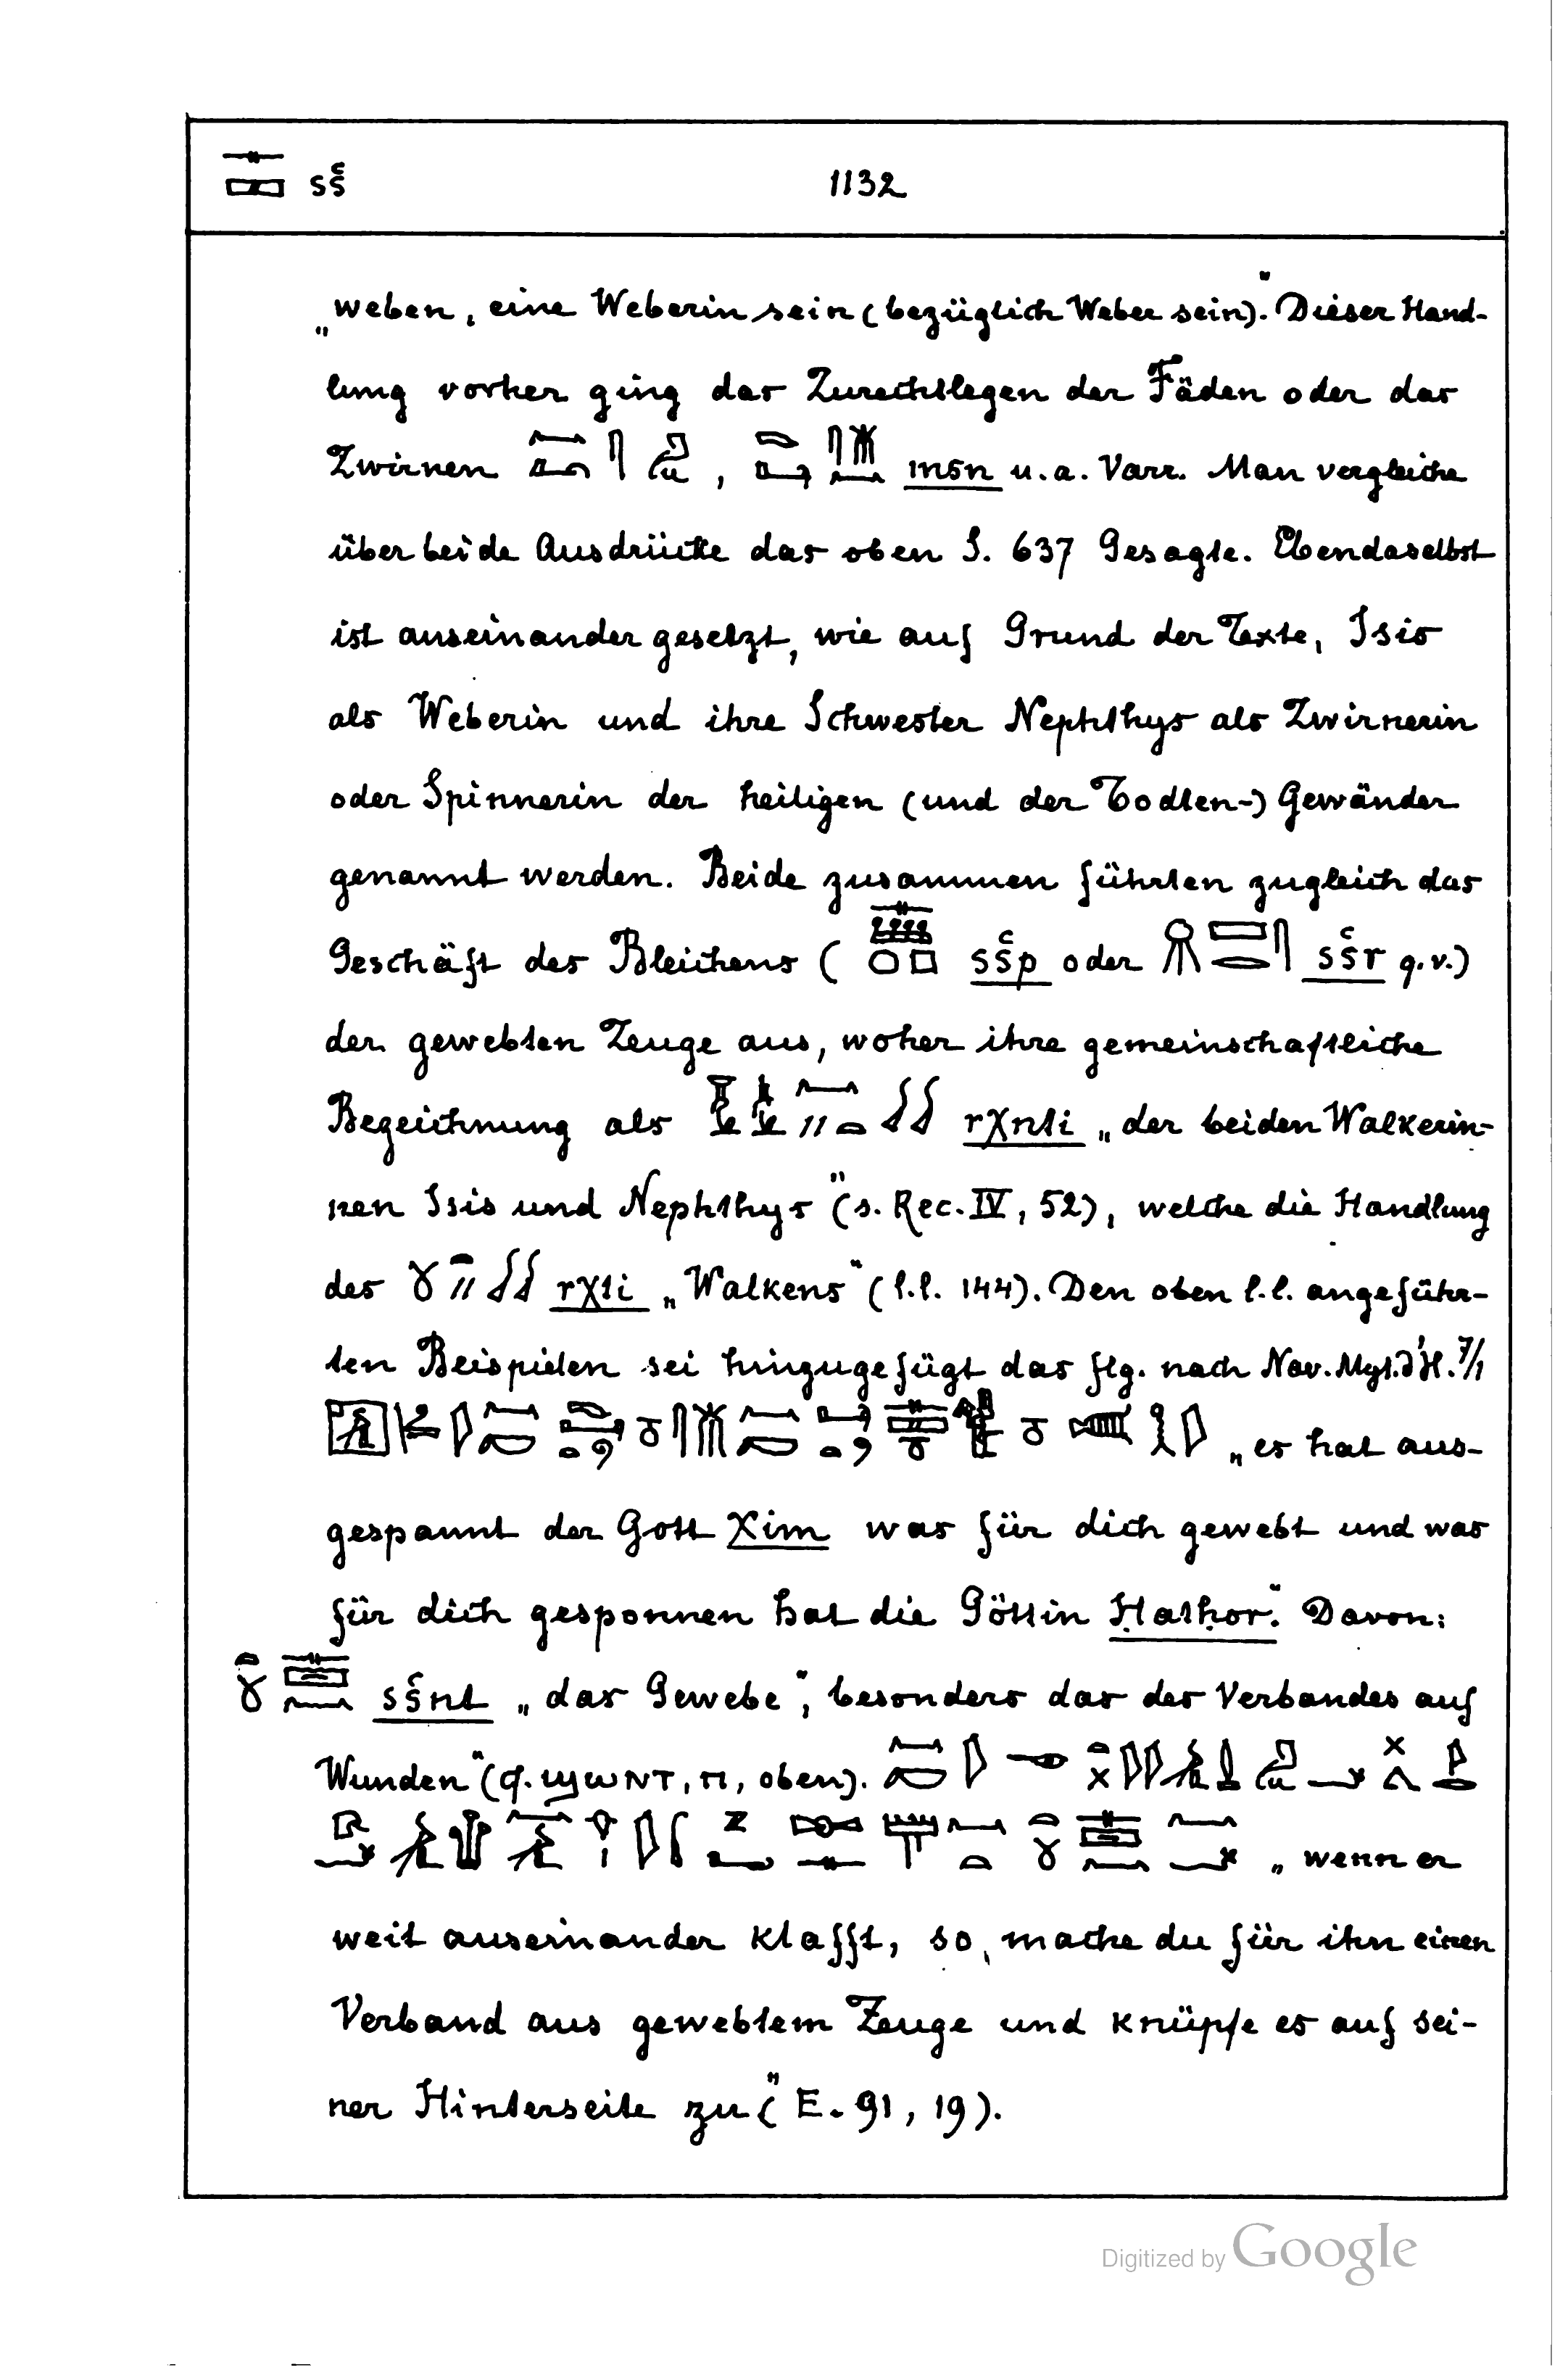 sš 1132
„weben, eine Weberin sein (bezüglich Weber sein).“ Dieser Hand-
lung vorher ging das Zurechtlegen der Fäden oder das
Zwirnen , msn u. a. Varr. Man vergleiche
über beide Ausdrücke das oben S. 637 Gesagte. Ebendaselbst
ist auseinander gesetzt, wie auf Grund der Texte, Isis
als Weberin und ihre Schwester Nephthys als Zwirnerin
oder Spinnerin der heiligen (und der Todten-) Gewänder
genannt werden. Beide zusammen führten zugleich das
Geschäft des Bleichens ( sšp oder sšr q. v.)
der gewebten Zeuge aus, woher ihre gemeinschaftliche
Bezeichnung als rχnti „der beiden Walkerin-
nen Isis und Nephthys“ (s. Rec. IV, 52), welche die Handlung
des rχti „Walkens“ (l. l. 144). Den oben l. l. angeführ-
ten Beispielen sei hinzugefügt das flg. nach Nav. Myt. d'H. 7/1
„es hat aus-
gespannt der Gott Xim was für dich gewebt und was
für dich gesponnen hat die Göttin Ḥatḥor.“ Davon:
sšnt „das Gewebe“, besonders das des Verbandes auf
Wunden“ (cf. ϣⲱⲛⲧ, π, oben).
„wenn er
weit auseinander klafft, so, mache du für ihn einen
Verband aus gewebtem Zeuge und knüpfe es auf sei-
ner Hinterseite zu“ (E. 91, 19).
Digitized by Google